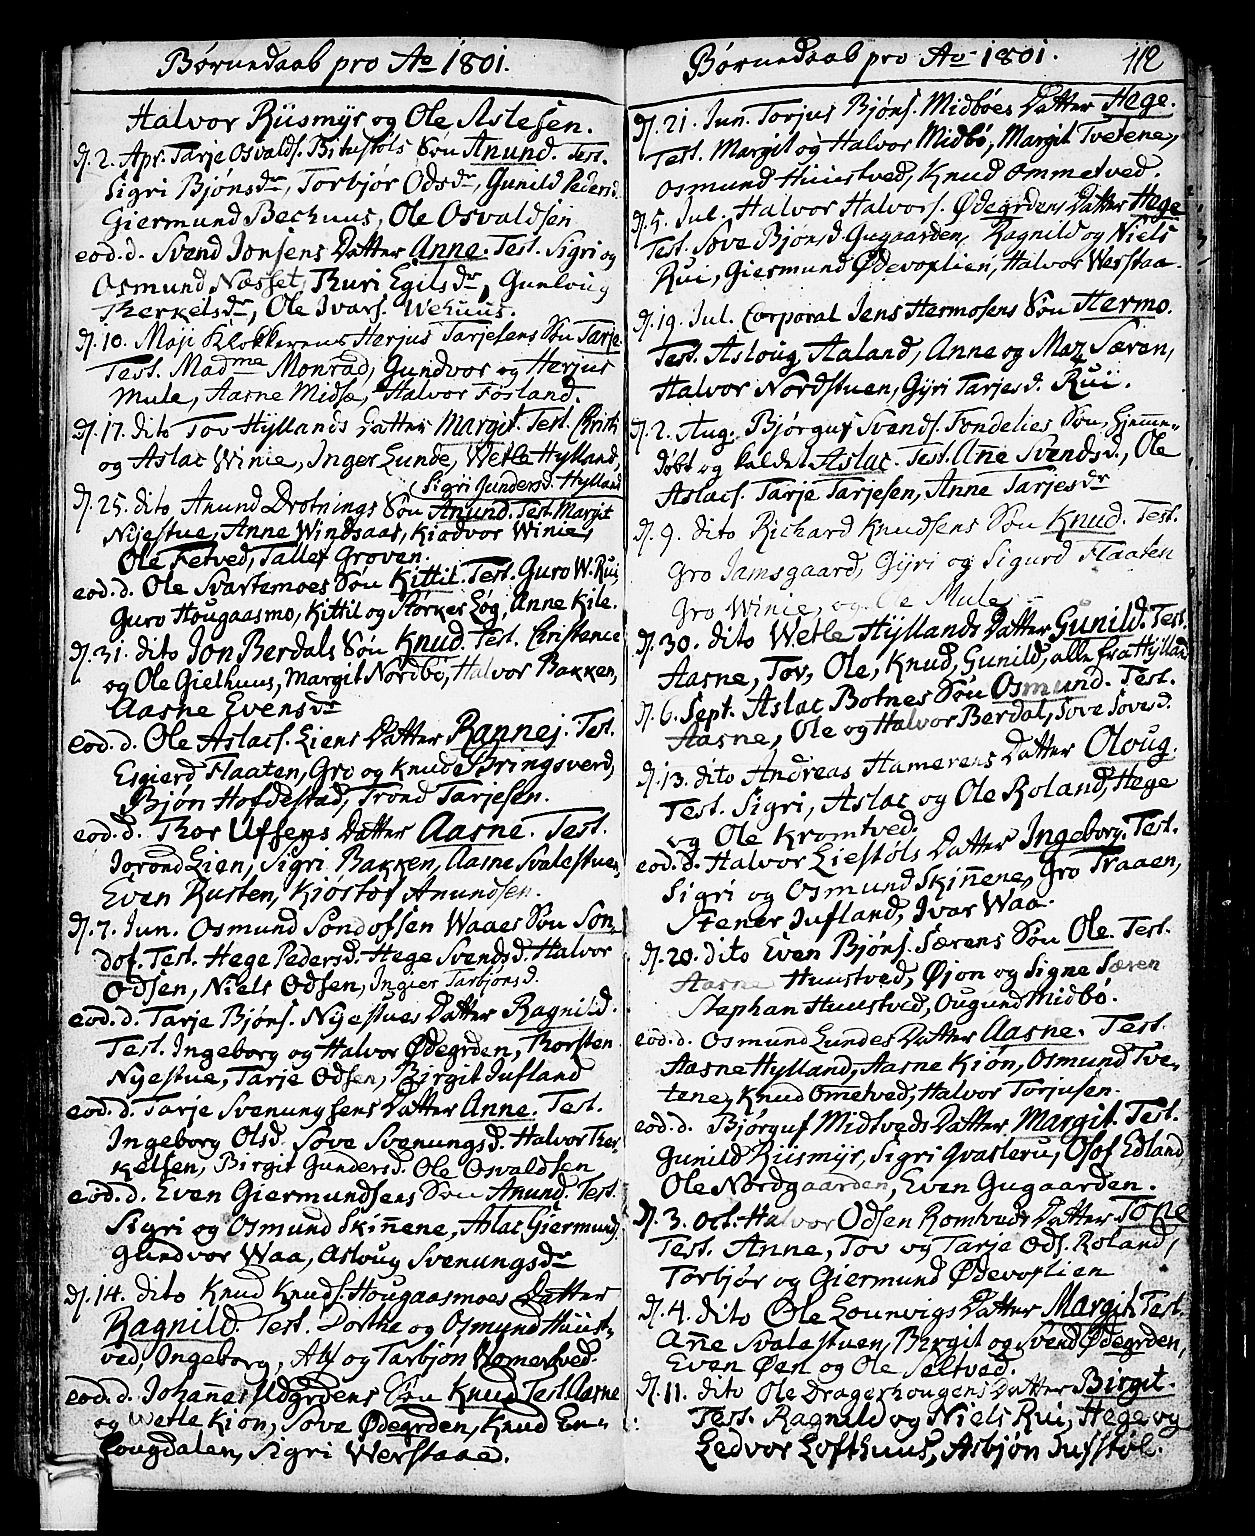 Børnedaab pro Ao 1801.
Halvor Riismyr og Ole Aslesen.
D. 2. Apr. Tarje Osvalds. Bitustöls Søn Anund. Test.
Sigri Bjönsdr, Torbjör Odsdr, Gunild Pedersd.
Giermund Bechuus, Ole Osvaldsen
eod. d. Svend Jonsens Datter Anne. Test. Sigri og
Osmund Næsset, Thuri Egilsdr, Gunloug
Therkelsdr, Ole Ivars. Wehuus.
D. 10. Maji Klokkerens Herjus Tarjesens Søn Tarje
Test. Madme Monrad, Gundvor og Herjus
Mule, Aasne Midsø, Halvor Fosland.
D. 17. dito Tov Hyllands Datter Margit. Test. Christi
og Aslac Winie, Inger Lunde, Wetle Hylland,
(Sigri Gundersd. Hylland
D. 25. dito Anund Drotnings Søn Anund. Test. Margit
Nijestue, Anne Windsaas, Kiødvor Winie,
Ole Fetved, Tallef Groven.
eod. d. Ole Svartemoes Søn Kittil. Test. Guro W. Rui,
Guro Hougaasmo, Kittil og Størker Løg, Anne Kile.
D. 31. dito Jon Berdals Søn Knud. Test. Christence
og Ole Gielhuus, Margit Nordbø, Halvor Bakken,
Aasne Evensdr
eod. d. Ole Aslacs. Liens Datter Rannej. Test.
Esgierd Flaaten, Gro og Knud Bringsverd,
Bjøn Hofdestad, Trond Tarjesen.
eod. d. Thor Uffsens Datter Aasne. Test.
Jorond Lien, Sigri Bakken, Aasne Svalestuen,
Even Rusten, Kiøstof Anundsen.
D. 7. Jun. Osmund Sondofsen Waaes Søn Son-
dof. Test. Hege Pedersd. Hege Svendsd. Halvor
Odsen, Niels Odsen, Ingier Tarbjønsd.
eod. d. Tarje Bjøns. Nyestues Datter Ragnild.
Test. Ingeborg og Halvor Ødegrden, Thorsten
Nyestue, Tarje Odsen, Birgit Jufland
eod. d. Tarje Svenungsens Datter Anne. Test.
Ingeborg Olsd. Søve Svenungsd. Halvor Ther-
kelsen, Birgit Gundersd. Ole Osvaldsen
eod. d. Even Giermundsens Søn Anund. Test.
Sigri og Osmund Skinnene, Aslac Giermunds.
Gundvor Waa, Asloug Svenungsdr
D. 14. dito Knud Knuds. Hougaasmoes Datter
Ragnild. Test. Dorthe og Osmund Huust-
ved, Ingeborg, Alf og Tarbjøn Romtved.
eod. d. Johannes Udgrdens Søn Knud Test. Aasne
og Wetle Kiøn, Søve Ødegrden, Knud En-
lougdalen, Sigri Werstaae.
Børnedaab pro Ao 1801.
112
D. 21. Jun. Torjus Bjøns. Midbøes Datter Hege.
Test. Margit og Halvor Midbø, Margit Tvetene,
Osmund Huustved, Knud Ommetved.
D. 5. Jul. Halvor Halvors. Ødegrdens Datter Hege
Test. Søve Bjønsd. Gugaarden, Ragnild og Niels
Rui, Giermund Ødevoplien, Halvor Werstaa.
D. 19. Jul. Corporal Jens Hermosens Søn Hermo.
Test. Asloug Aaland, Anne og Maz Særen,
Halvor Nordstuen, Gyri Tarjesd. Rui.
D. 2. Aug. Bjørguf Svends. Fondelies Søn, hjemme-
døbt og kaldet Aslac. Test. Anne Svendsd., Ole
Aslacs. Tarje Tarjesen, Anne Tarjesdr
D. 9. dito Richard Knudsens Søn Knud. Test.
Gro Jamsgaard, Gyri og Sigurd Flaaten
Gro Winie, og Ole Mule
D. 30. dito Wetle Hyllands Datter Gunild. Test.
Aasne, Tov, Ole, Knud, Gunild, alle fra Hylland
D. 6. Sept. Aslac Botnes Søn Osmund. Test.
Aasne, Ole og Halvor Berdal, Søve Sovesd.
D. 13. dito Andreas Hamerens Datter Oloug.
Test. Sigri, Aslac og Ole Roland, Hege
og Ole Kromtved.
eod. d. Halvor Liestöls Datter Ingeborg. Test.
Sigri og Osmund Skinnene, Gro Traaen,
Stener Jufland, Ivar Waa.
D. 20. dito Even Bjøns. Særens Søn Ole. Test.
Aasne Huustved, Øjon og Signe Særen
Stephan Huustved, Ougund Midbø.
eod. d. Osmund Lundes Datter Aasne. Test.
Aasne Hylland, Aasne Kiøn, Osmund Tve-
tene, Knud Ometved, Halvor Torjusen.
eod. d. Bjørguf Midtveds Datter Margit. Test.
Gunild Riismyr, Sigri Qvasteru, Olof Edland,
Ole Nordgaarden, Even Gugaarden.
D. 3. Oct. Halvor Odsen Romtveds Datter Tone
Test. Anne, Tov og Tarje Ods. Roland,
Torbjør og Giermund Ødevoplien
D. 4. dito Ole Lounvigs Datter Margit. Test.
Anne Svalestuen, Birgit og Svend Ødegrden,
Even Øen og Ole Seltved.
D. 11. dito Ole Dragerhougens Datter Birgit.
Test. Ragnild og Niels Rui, Hege og
Ledvor Lofthuus, Asbjøn Jufstøl.